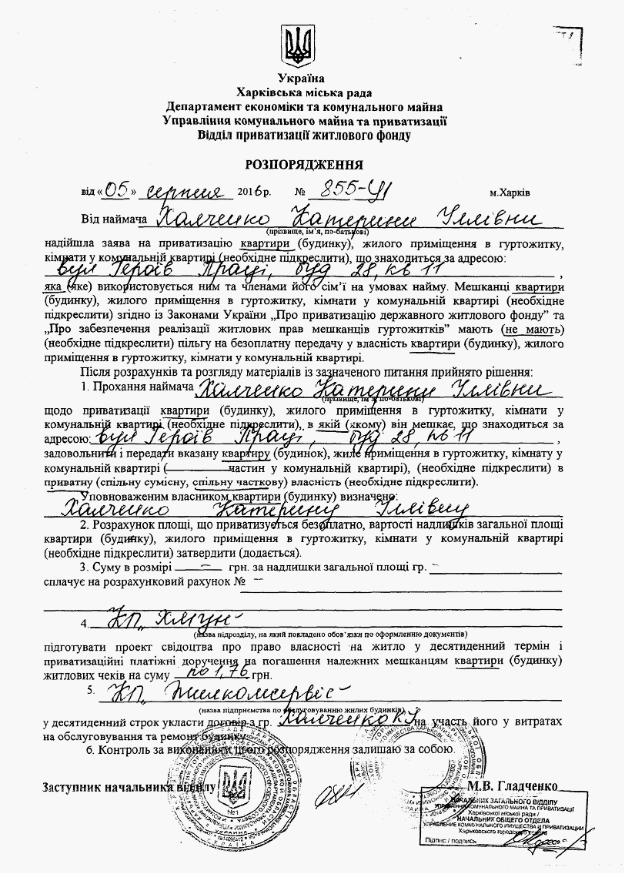 Україна
Харківська міська рада
Департамент економіки та комунального майна
Управління комунального майна та приватизації
Відділ приватизації житлового фонду
РОЗПОРЯДЖЕННЯ
від «05» серпня 2016 р. № 855-Ц1 м.Харків
Від наймача Халченко Катерини Іллівни
(прізвище, ім'я, по-батькові)
надійшла заява на приватизацію квартири (будинку), жилого приміщення в гуртожитку,
кімнати у комунальній квартирі (необхідне підкреслити), що знаходиться за адресою:
вул Героїв Праці, буд 28, кв 11,
яка (яке) використовується ним та членами його сім'ї на умовах найму. Мешканці квартири
(будинку), жилого приміщення в гуртожитку, кімнати у комунальній квартирі (необхідне
підкреслити) згідно із Законами України „Про приватизацію державного житлового фонду" та
„Про забезпечення реалізації житлових прав мешканців гуртожитків" мають (не мають)
(необхідне підкреслити) пільгу на безоплатну передачу у власність квартири (будинку), жилого
приміщення в гуртожитку, кімнати у комунальній квартирі.
Після розрахунків та розгляду матеріалів із зазначеного питання прийнято рішення:
1. Прохання наймача Халченко Катерини Іллівни
(прізвище, ім'я по-батькові)
щодо приватизації квартири (будинку), жилого приміщення в гуртожитку, кімнати у
комунальній квартирі (необхідне підкреслити), в якій (якому) він мешкає, що знаходиться за
адресою: вул Героїв Праці, буд 28, кв 11,
задовольнити і передати вказану квартиру (будинок), жиле приміщення в гуртожитку, кімнату у
комунальній квартирі (частин у комунальній квартирі), (необхідне підкреслити) в
приватну (спільну сумісну, спільну часткову) власність (необхідне підкреслити).
Уповноваженим власником квартири (будинку) визначено:
Халченко Катерину Іллівну
2. Розрахунок площі, що приватизується безоплатно, вартості надлишків загальної площі
квартири (будинку), жилого приміщення в гуртожитку, кімнати у комунальній квартирі
(необхідне підкреслити) затвердити (додається).
3. Суму в розмірі — грн. за надлишки загальної площі гр. —
сплачує на розрахунковий рахунок № —
4. КП „ХМУН"
(назва підрозділу, на який покладено обов'язки по оформленню документів)
підготувати проект свідоцтва про право власності на житло у десятиденний термін і
приватизаційні платіжні доручення на погашення належних мешканцям квартири (будинку)
житлових чеків на суму по 1,76 грн.
5. КП „Жилкомсервіс"
(назва підприємства по обслуговуванню жилих будинків)
у десятиденний строк укласти договір з гр. Халченко К.І. на участь його у витратах
на обслуговування та ремонт будинку.
6. Контроль за виконанням цього розпорядження залишаю за собою.
Заступник начальника відділу М.В. Гладченко
НАЧАЛЬНИК ЗАГАЛЬНОГО ВІДДІЛУ
УПРАВЛІННЯ КОМУНАЛЬНОГО МАЙНА ТА ПРИВАТИЗАЦІЇ
Харківської міської ради /
НАЧАЛЬНИК ОБЩЕГО ОТДЕЛА
УПРАВЛЕНИЕ КОММУНАЛЬНОГО ИМУЩЕСТВА И ПРИВАТИЗАЦИИ
Харьковского городского совета
Підпис / подпись